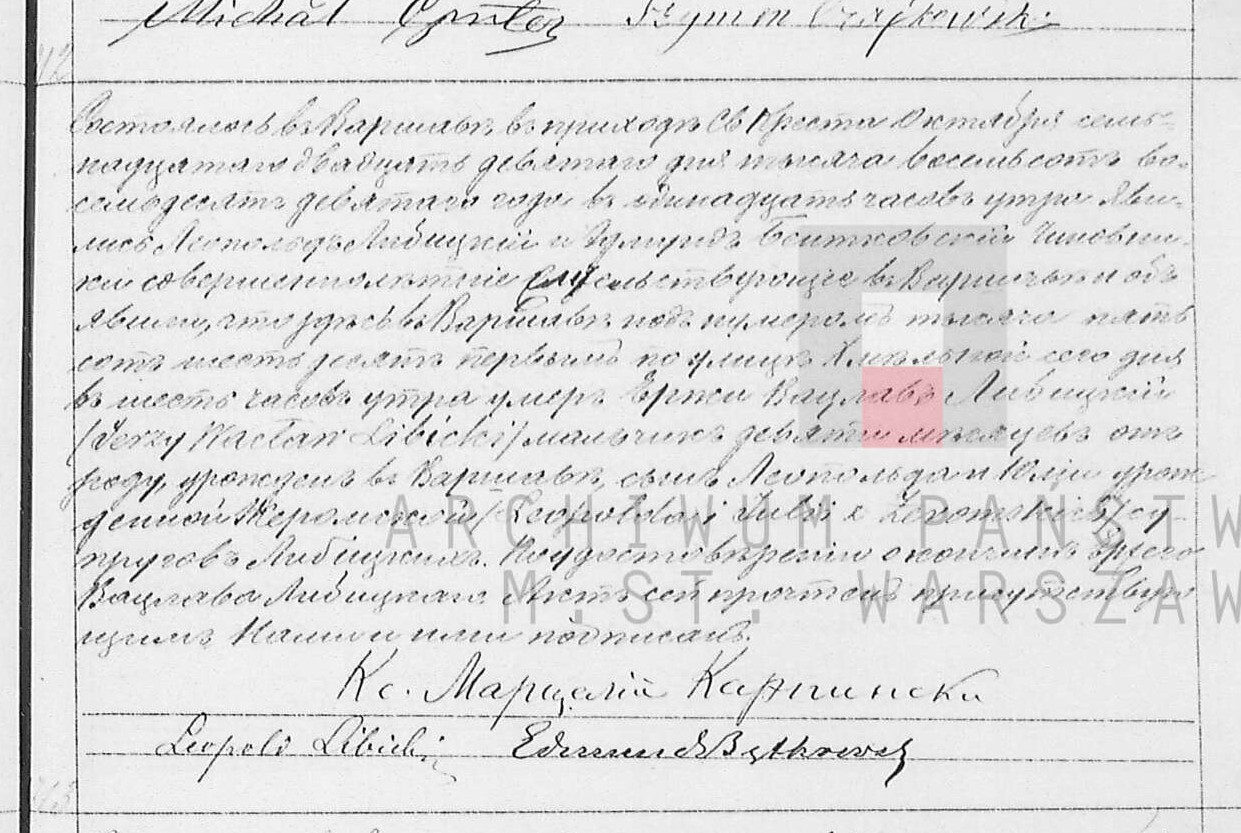 Michał Szymon
Состоялось въ Варшавѣ въ приходѣ Св Креста Октября семь-
надцатаго двадцать девятаго дня тысяча восемьсотъ во-
семьдесятъ девятаго года въ одинадцать часовъ утра Яви-
лись Леопольдъ Либицкій и Эдмундъ Бытковскій Чиновни-
ки совершеннолѣтніе въ Варшавѣ и объ
явили, что здѣсь въ Варшавѣ подъ нумеромъ тысяча пять
сотъ шестьдесятъ первымъ по улицѣ Хмѣльной сего дня
въ шесть часовъ утра умеръ Ержи Вацлавъ Либицкій
/Jerzy Wacław Libicki/ мальчикъ девяти мѣсяцевъ отъ
роду, урожденъ въ Варшавѣ, сынъ Леопольда и Юліи урож
денной Жеромской /Leopolda i Julii z Żeromskich/ су-
пруговъ Либицкихъ. По удостовѣреніи о кончинѣ
Вацлава Либицкаго Актъ сей прочтенъ присутствую
щимъ Нами и ими подписанъ.
Кс. Марцелій Карпински
Leopold Libicki Edmund Bytkowski
ARCHIWUM PAŃSTW
M.ST. WARSZAW